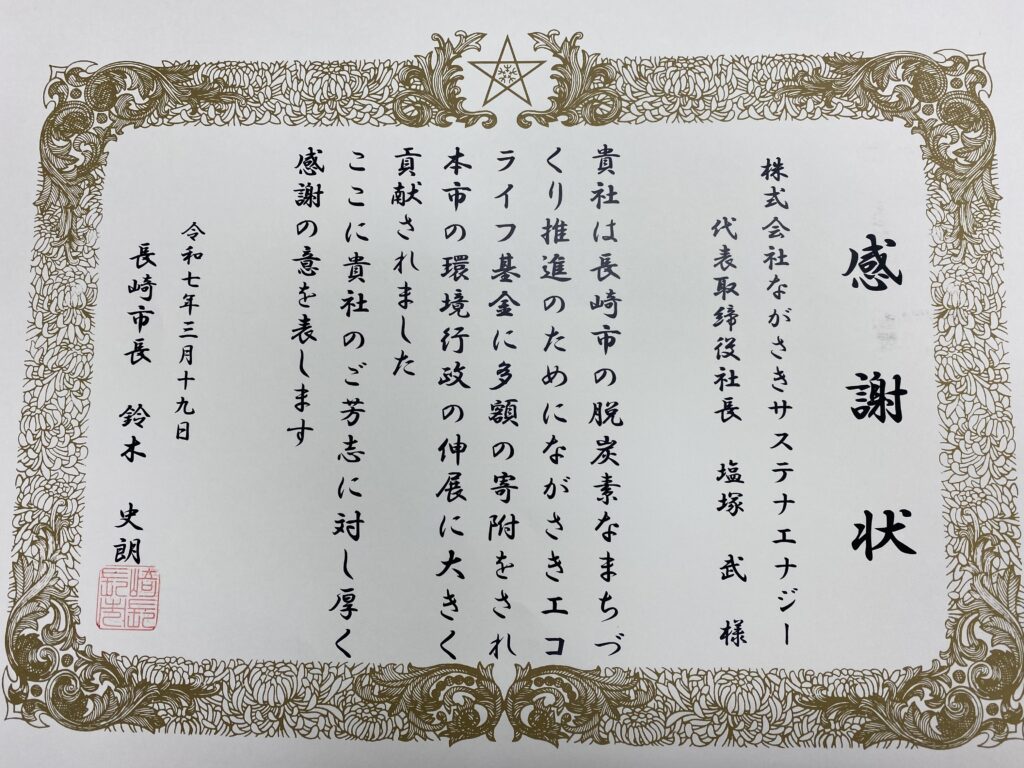 感謝状
株式会社ながさきサステナエナジー
代表取締役社長 塩塚 武 様
貴社は長崎市の脱炭素なまちづ
くり推進のためにながさきエコ
ライフ基金に多額の寄附をされ
本市の環境行政の伸展に大きく
貢献されました
ここに貴社のご芳志に対し厚く
感謝の意を表します
令和七年三月十九日
長崎市長 鈴木 史朗